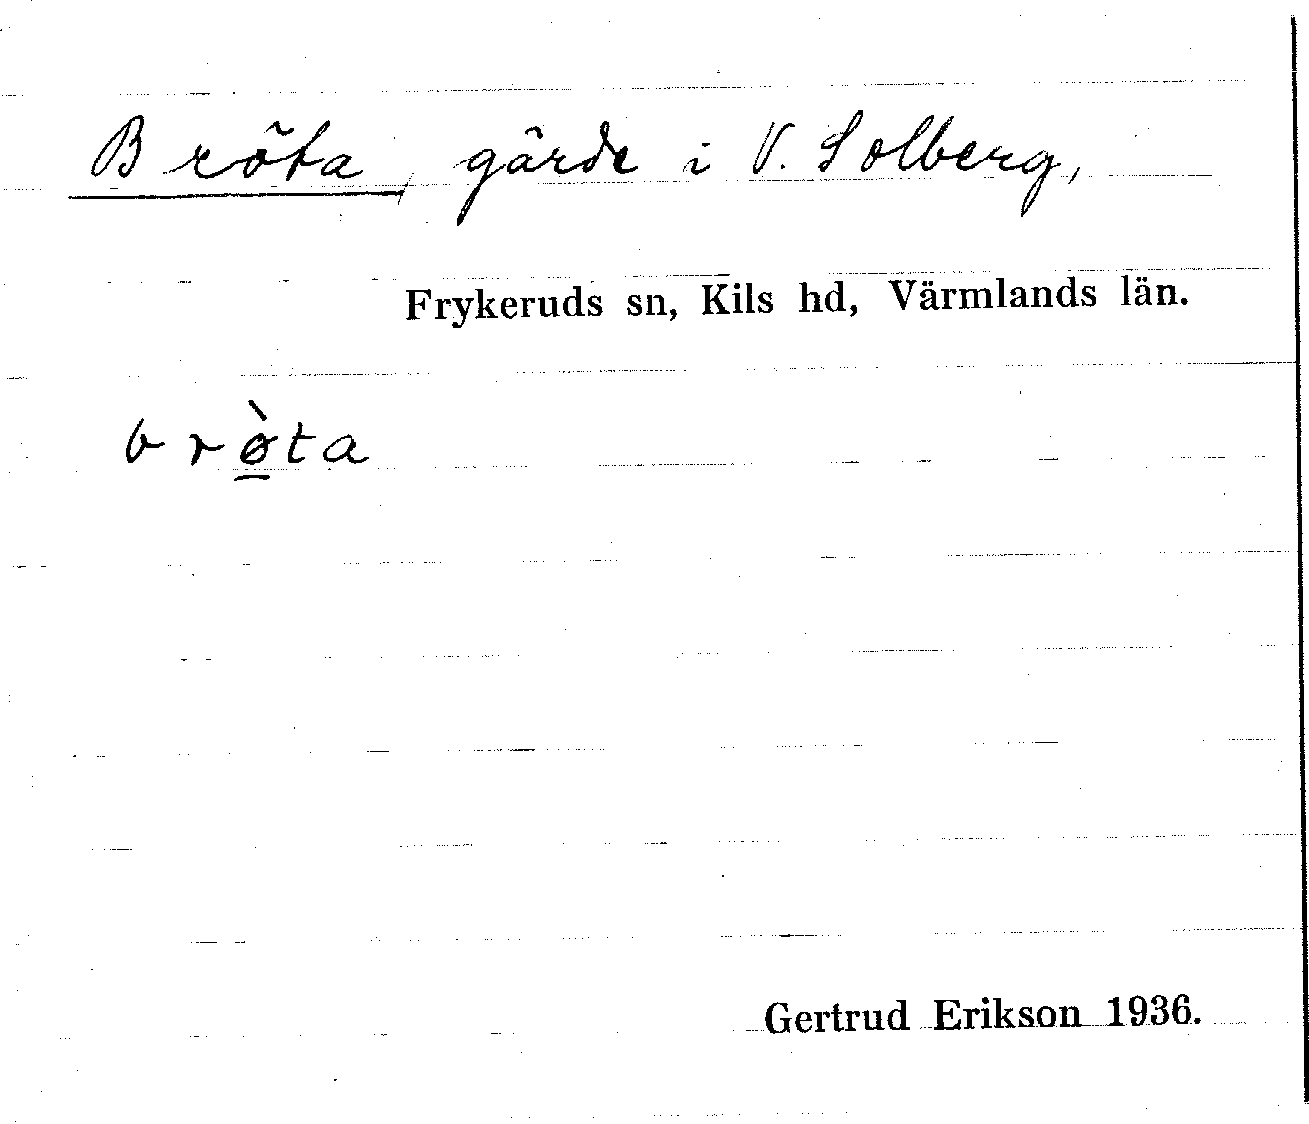 Bröta, gärde i V. Solberg,
Frykeruds sn, Kils hd, Värmlands län.
brø̱̀ta
Gertrud Erikson 1936.